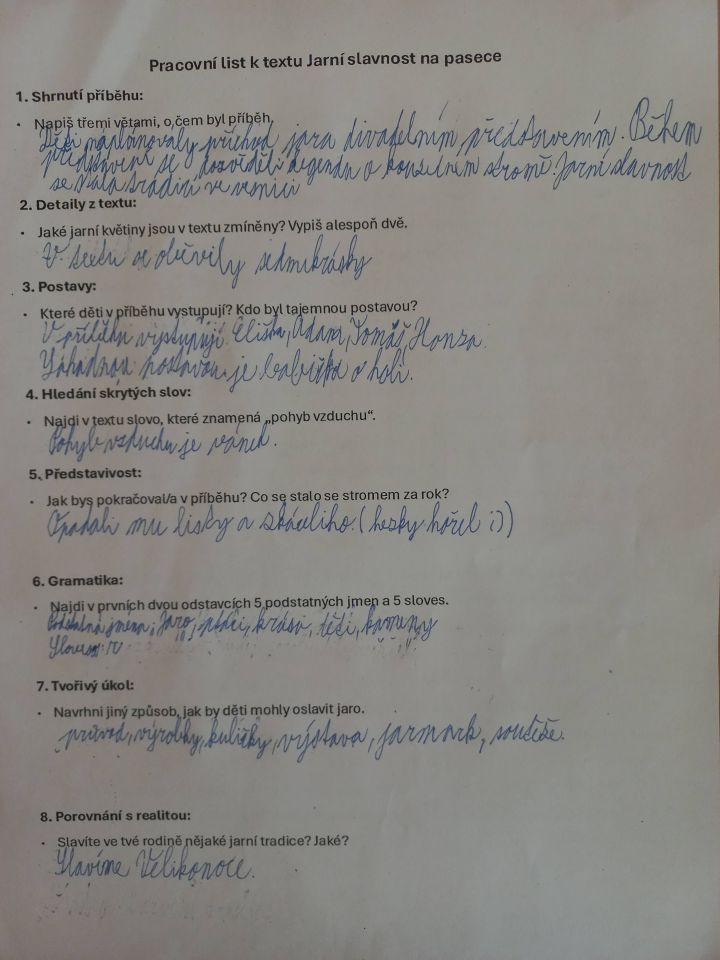 Pracovní list k textu Jarní slavnost na pasece
1. Shrnutí příběhu:
• Napiš třemi větami, o čem byl příběh.
Děti náplánovaly příchod jara divadelním představením. Během
představení se dozvěděli legendu o kouzelném stromě. Jarní slavnost
se stala tradicí ve vesnici
2. Detaily z textu:
• Jaké jarní květiny jsou v textu zmíněny? Vypiš alespoň dvě.
V textu se objevily sedmikrásky
3. Postavy:
• Které děti v příběhu vystupují? Kdo byl tajemnou postavou?
V příběhu vystupují Eliška, Adam, Tomáš, Honza.
Záhadnou postavou je babička o holi.
4. Hledání skrytých slov:
• Najdi v textu slovo, které znamená „pohyb vzduchu“.
Pohyb vzduchu je vánek.
5. Představivost:
• Jak bys pokračoval/a v příběhu? Co se stalo se stromem za rok?
Opadali mu lisky a skáceliho. (hezky hořel ;))
6. Gramatika:
• Najdi v prvních dvou odstavcích 5 podstatných jmen a 5 sloves.
Podstatná jména: Jaro, ptáci, krása, děti, kameny
Slovesa:
7. Tvořivý úkol:
• Navrhni jiný způsob, jak by děti mohly oslavit jaro.
průvod, výrobky, kuličky, výstava, jarmark, soutěže.
8. Porovnání s realitou:
• Slavíte ve tvé rodině nějaké jarní tradice? Jaké?
Slavíme Velikonoce.